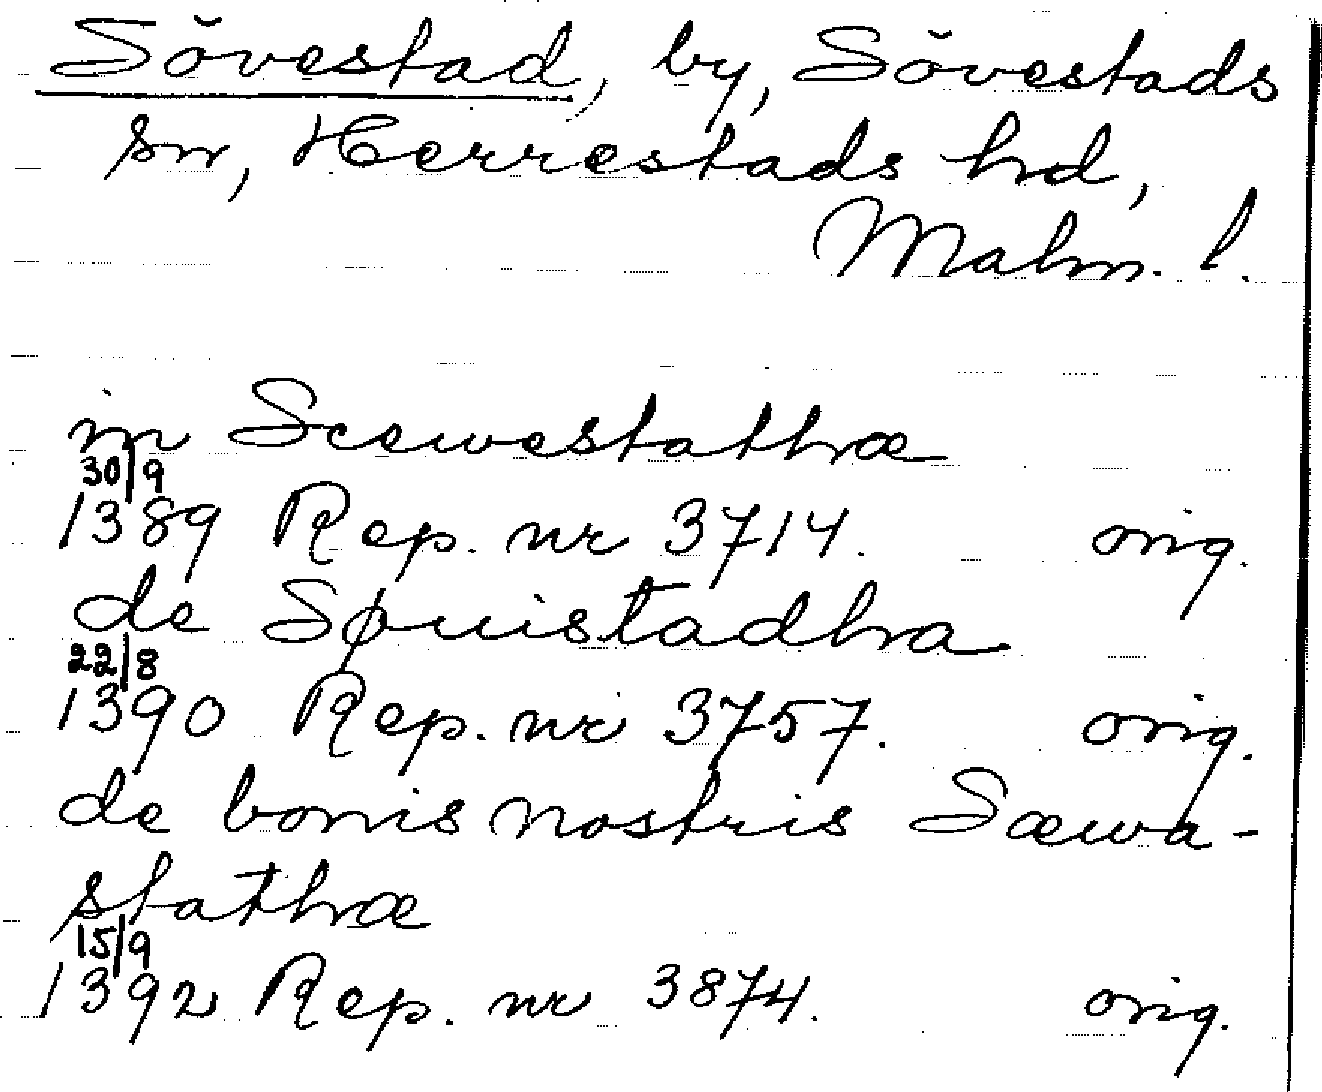 Sövestad, by, Sövestads
sn, Herrestads hd,
Malm. l.
in Scewestathæ
30/9
1389 Rep. nr 3714. orig.
de Søuistadha
22/8
1390 Rep. nr 3757. orig.
de bonis nostris Sæwa-
stathæ
15/9
1392 Rep. nr 3874. orig.